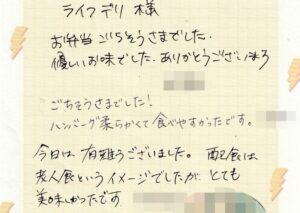 ライフデリ 様
お弁当ごちそうさまでした。
優しいお味でした。ありがとうございます
ごちそうさまでした!
ハンバーグ柔らかくて食べやすかったです。
今日は有難うございました。配食は
老人食というイメージでしたが、とても
美味しかったです